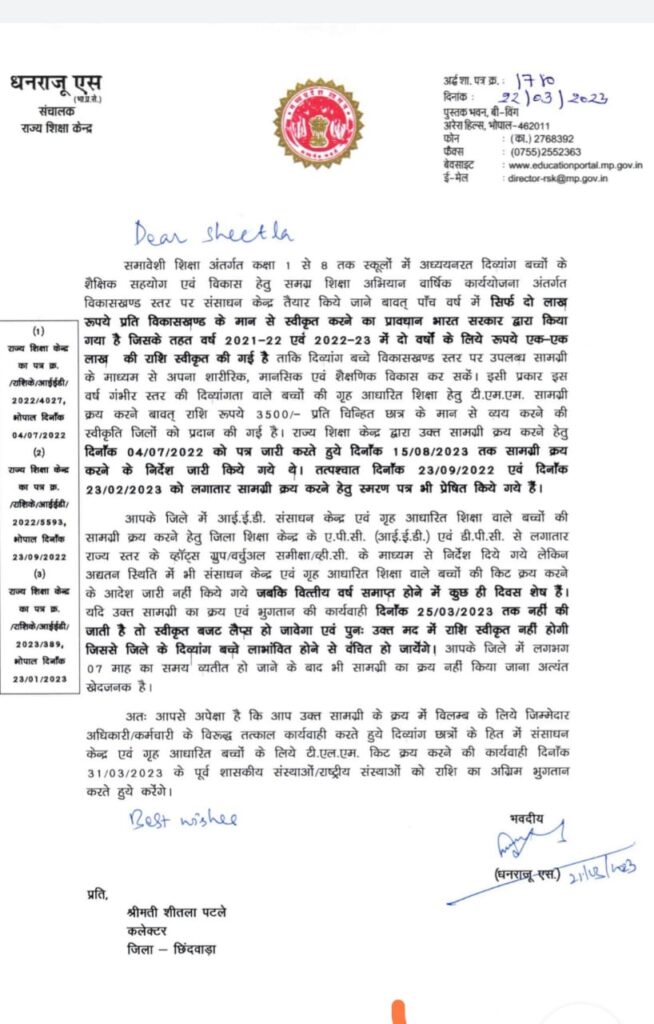 धनराजू एस
(भा.प्र.से.)
संचालक
राज्य शिक्षा केन्द्र
अर्द्ध शा. पत्र क्र. : 1780
दिनांक : 22/03/2023
पुस्तक भवन, बी-विंग
अरेरा हिल्स, भोपाल-462011
फोन : (का.) 2768392
फैक्स : (0755)2552363
वेबसाइट : www.educationportal.mp.gov.in
ई-मेल : director-rsk@mp.gov.in
Dear Sheetla
समावेशी शिक्षा अंतर्गत कक्षा 1 से 8 तक स्कूलों में अध्ययनरत दिव्यांग बच्चों के
शैक्षिक सहयोग एवं विकास हेतु समग्र शिक्षा अभियान वार्षिक कार्ययोजना अंतर्गत
विकासखण्ड स्तर पर संसाधन केन्द्र तैयार किये जाने बावत् पाँच वर्ष में सिर्फ दो लाख
रूपये प्रति विकासखण्ड के मान से स्वीकृत करने का प्रावधान भारत सरकार द्वारा किया
गया है जिसके तहत वर्ष 2021-22 एवं 2022-23 में दो वर्षों के लिये रूपये एक-एक
लाख की राशि स्वीकृत की गई है ताकि दिव्यांग बच्चे विकासखण्ड स्तर पर उपलब्ध सामग्री
के माध्यम से अपना शारीरिक, मानसिक एवं शैक्षणिक विकास कर सकें। इसी प्रकार इस
वर्ष गंभीर स्तर की दिव्यांगता वाले बच्चों की गृह आधारित शिक्षा हेतु टी.एम.एम. सामग्री
क्रय करने बावत् राशि रूपये 3500/- प्रति चिन्हित छात्र के मान से व्यय करने की
स्वीकृति जिलों को प्रदान की गई है। राज्य शिक्षा केन्द्र द्वारा उक्त सामग्री क्रय करने हेतु
दिनाँक 04/07/2022 को पत्र जारी करते हुये दिनाँक 15/08/2023 तक सामग्री क्रय
करने के निर्देश जारी किये गये थे। तत्पश्चात दिनाँक 23/09/2022 एवं दिनाँक
23/02/2023 को लगातार सामग्री क्रय करने हेतु स्मरण पत्र भी प्रेषित किये गये हैं।
(1)
राज्य शिक्षा केन्द्र
का पत्र क्र.
/राशिके/आईईडी/
2022/4027,
भोपाल दिनाँक
04/07/2022
(2)
राज्य शिक्षा केन्द्र
का पत्र क्र.
/राशिके/आईईडी/
2022/5593,
भोपाल दिनाँक
23/09/2022
(3)
राज्य शिक्षा केन्द्र
का पत्र क्र.
/राशिके/आईईडी/
2023/389,
भोपाल दिनाँक
23/01/2023
आपके जिले में आई.ई.डी. संसाधन केन्द्र एवं गृह आधारित शिक्षा वाले बच्चों की
सामग्री क्रय करने हेतु जिला शिक्षा केन्द्र के ए.पी.सी. (आई.ई.डी.) एवं डी.पी.सी. से लगातार
राज्य स्तर के व्हॉट्स ग्रुप/वर्चुअल समीक्षा/व्ही.सी. के माध्यम से निर्देश दिये गये लेकिन
अद्यतन स्थिति में भी संसाधन केन्द्र एवं गृह आधारित शिक्षा वाले बच्चों की किट क्रय करने
के आदेश जारी नहीं किये गये जबकि वित्तीय वर्ष समाप्त होने में कुछ ही दिवस शेष हैं।
यदि उक्त सामग्री का क्रय एवं भुगतान की कार्यवाही दिनाँक 25/03/2023 तक नहीं की
जाती है तो स्वीकृत बजट लैप्स हो जावेगा एवं पुनः उक्त मद में राशि स्वीकृत नहीं होगी
जिससे जिले के दिव्यांग बच्चे लाभांवित होने से वंचित हो जायेंगे। आपके जिले में लगभग
07 माह का समय व्यतीत हो जाने के बाद भी सामग्री का क्रय नहीं किया जाना अत्यंत
खेदजनक है।
अतः आपसे अपेक्षा है कि आप उक्त सामग्री के क्रय में विलम्ब के लिये जिम्मेदार
अधिकारी/कर्मचारी के विरूद्ध तत्काल कार्यवाही करते हुये दिव्यांग छात्रों के हित में संसाधन
केन्द्र एवं गृह आधारित बच्चों के लिये टी.एल.एम. किट क्रय करने की कार्यवाही दिनाँक
31/03/2023 के पूर्व शासकीय संस्थाओं/राष्ट्रीय संस्थाओं को राशि का अग्रिम भुगतान
करते हुये करेंगे।
Best wishes
भवदीय
(धनराजू एस.) 21/03/2023
प्रति,
श्रीमती शीतला पटले
कलेक्टर
जिला – छिंदवाड़ा